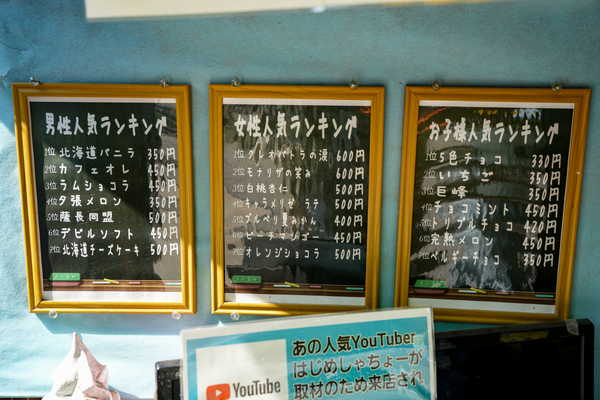 男性人気ランキング
1位 北海道バニラ 350円
2位 カフェオレ 450円
3位 ラムショコラ 450円
4位 夕張メロン 350円
5位 薩長同盟 500円
6位 デビルソフト 450円
7位 北海道チーズケーキ 500円
女性人気ランキング
1位 クレオパトラの涙 600円
2位 モナリザの笑み 600円
3位 白桃杏仁 500円
4位 キャラメリゼ ラテ 500円
5位 ブルベリ夏みかん 400円
6位 ピーチマンゴー 450円
7位 オレンジショコラ 500円
お子様人気ランキング
1位 5色チョコ 330円
2位 いちご 350円
3位 巨峰 350円
4位 チョコミント 450円
5位 トリプルチョコ 420円
6位 完熟メロン 450円
7位 ベルギーチョコ 350円
あの人気YouTuber
はじめしゃちょーが
取材のため来店され
YouTube